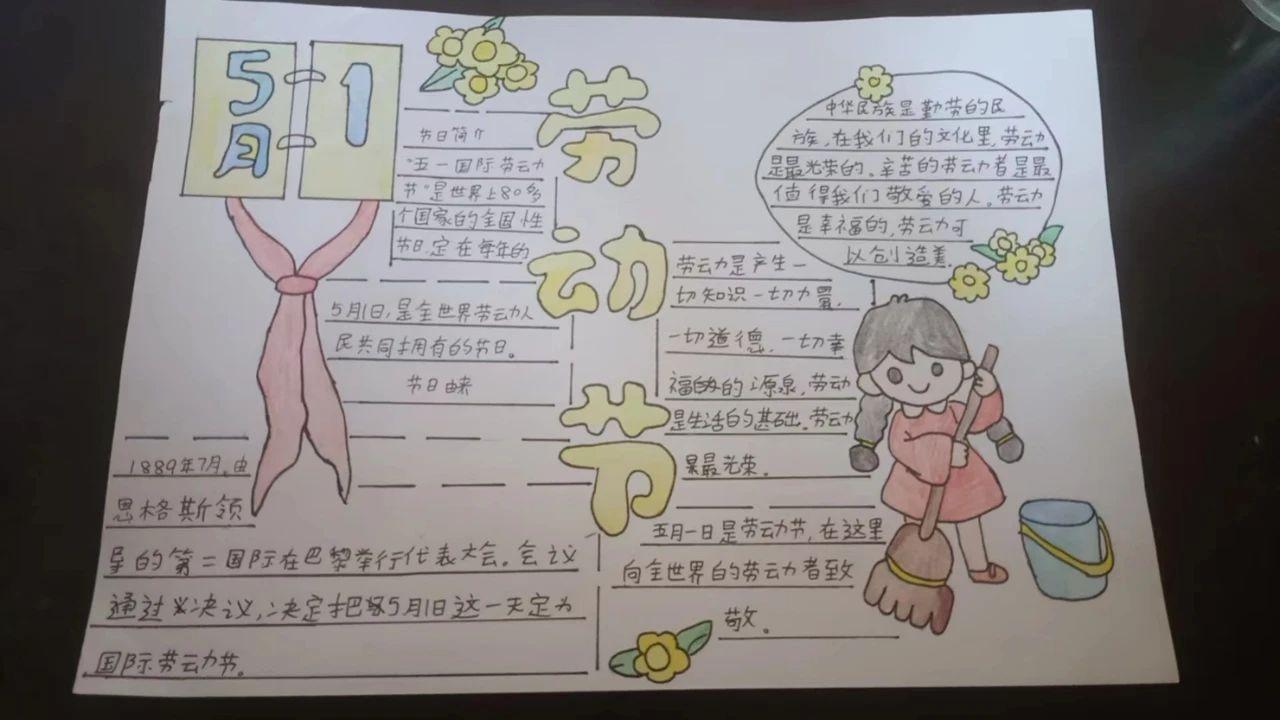 5月
1
劳动节
节日简介
"五一国际劳动
节"是世界上80多
个国家的全国性
节日.定在每年的
5月1日,是全世界劳动人
民共同拥有的节日。
节日由来
1889年7月,由
恩格斯领
导的第二国际在巴黎举行代表大会。会议
通过决议,决定把5月1日这一天定为
国际劳动节。
中华民族是勤劳的民
族,在我们的文化里,劳动
是最光荣的。辛苦的劳动者是最
值得我们敬爱的人。劳动
是幸福的,劳动可
以创造美.
劳动是产生一
切知识一切力量,
一切道德,一切幸
福的源泉,劳动
是生活的基础。劳动
最光荣。
五月一日是劳动节,在这里
向全世界的劳动者致
敬。